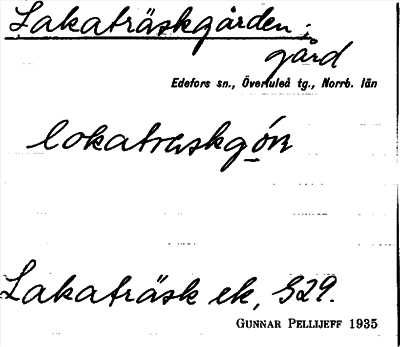 Lakaträskgården;
gård
Edefors sn., Överluleå tg., Norrb. län
lokatraskgón
Lakaträsk ek, S29.
GUNNAR PELLIJEFF 1935